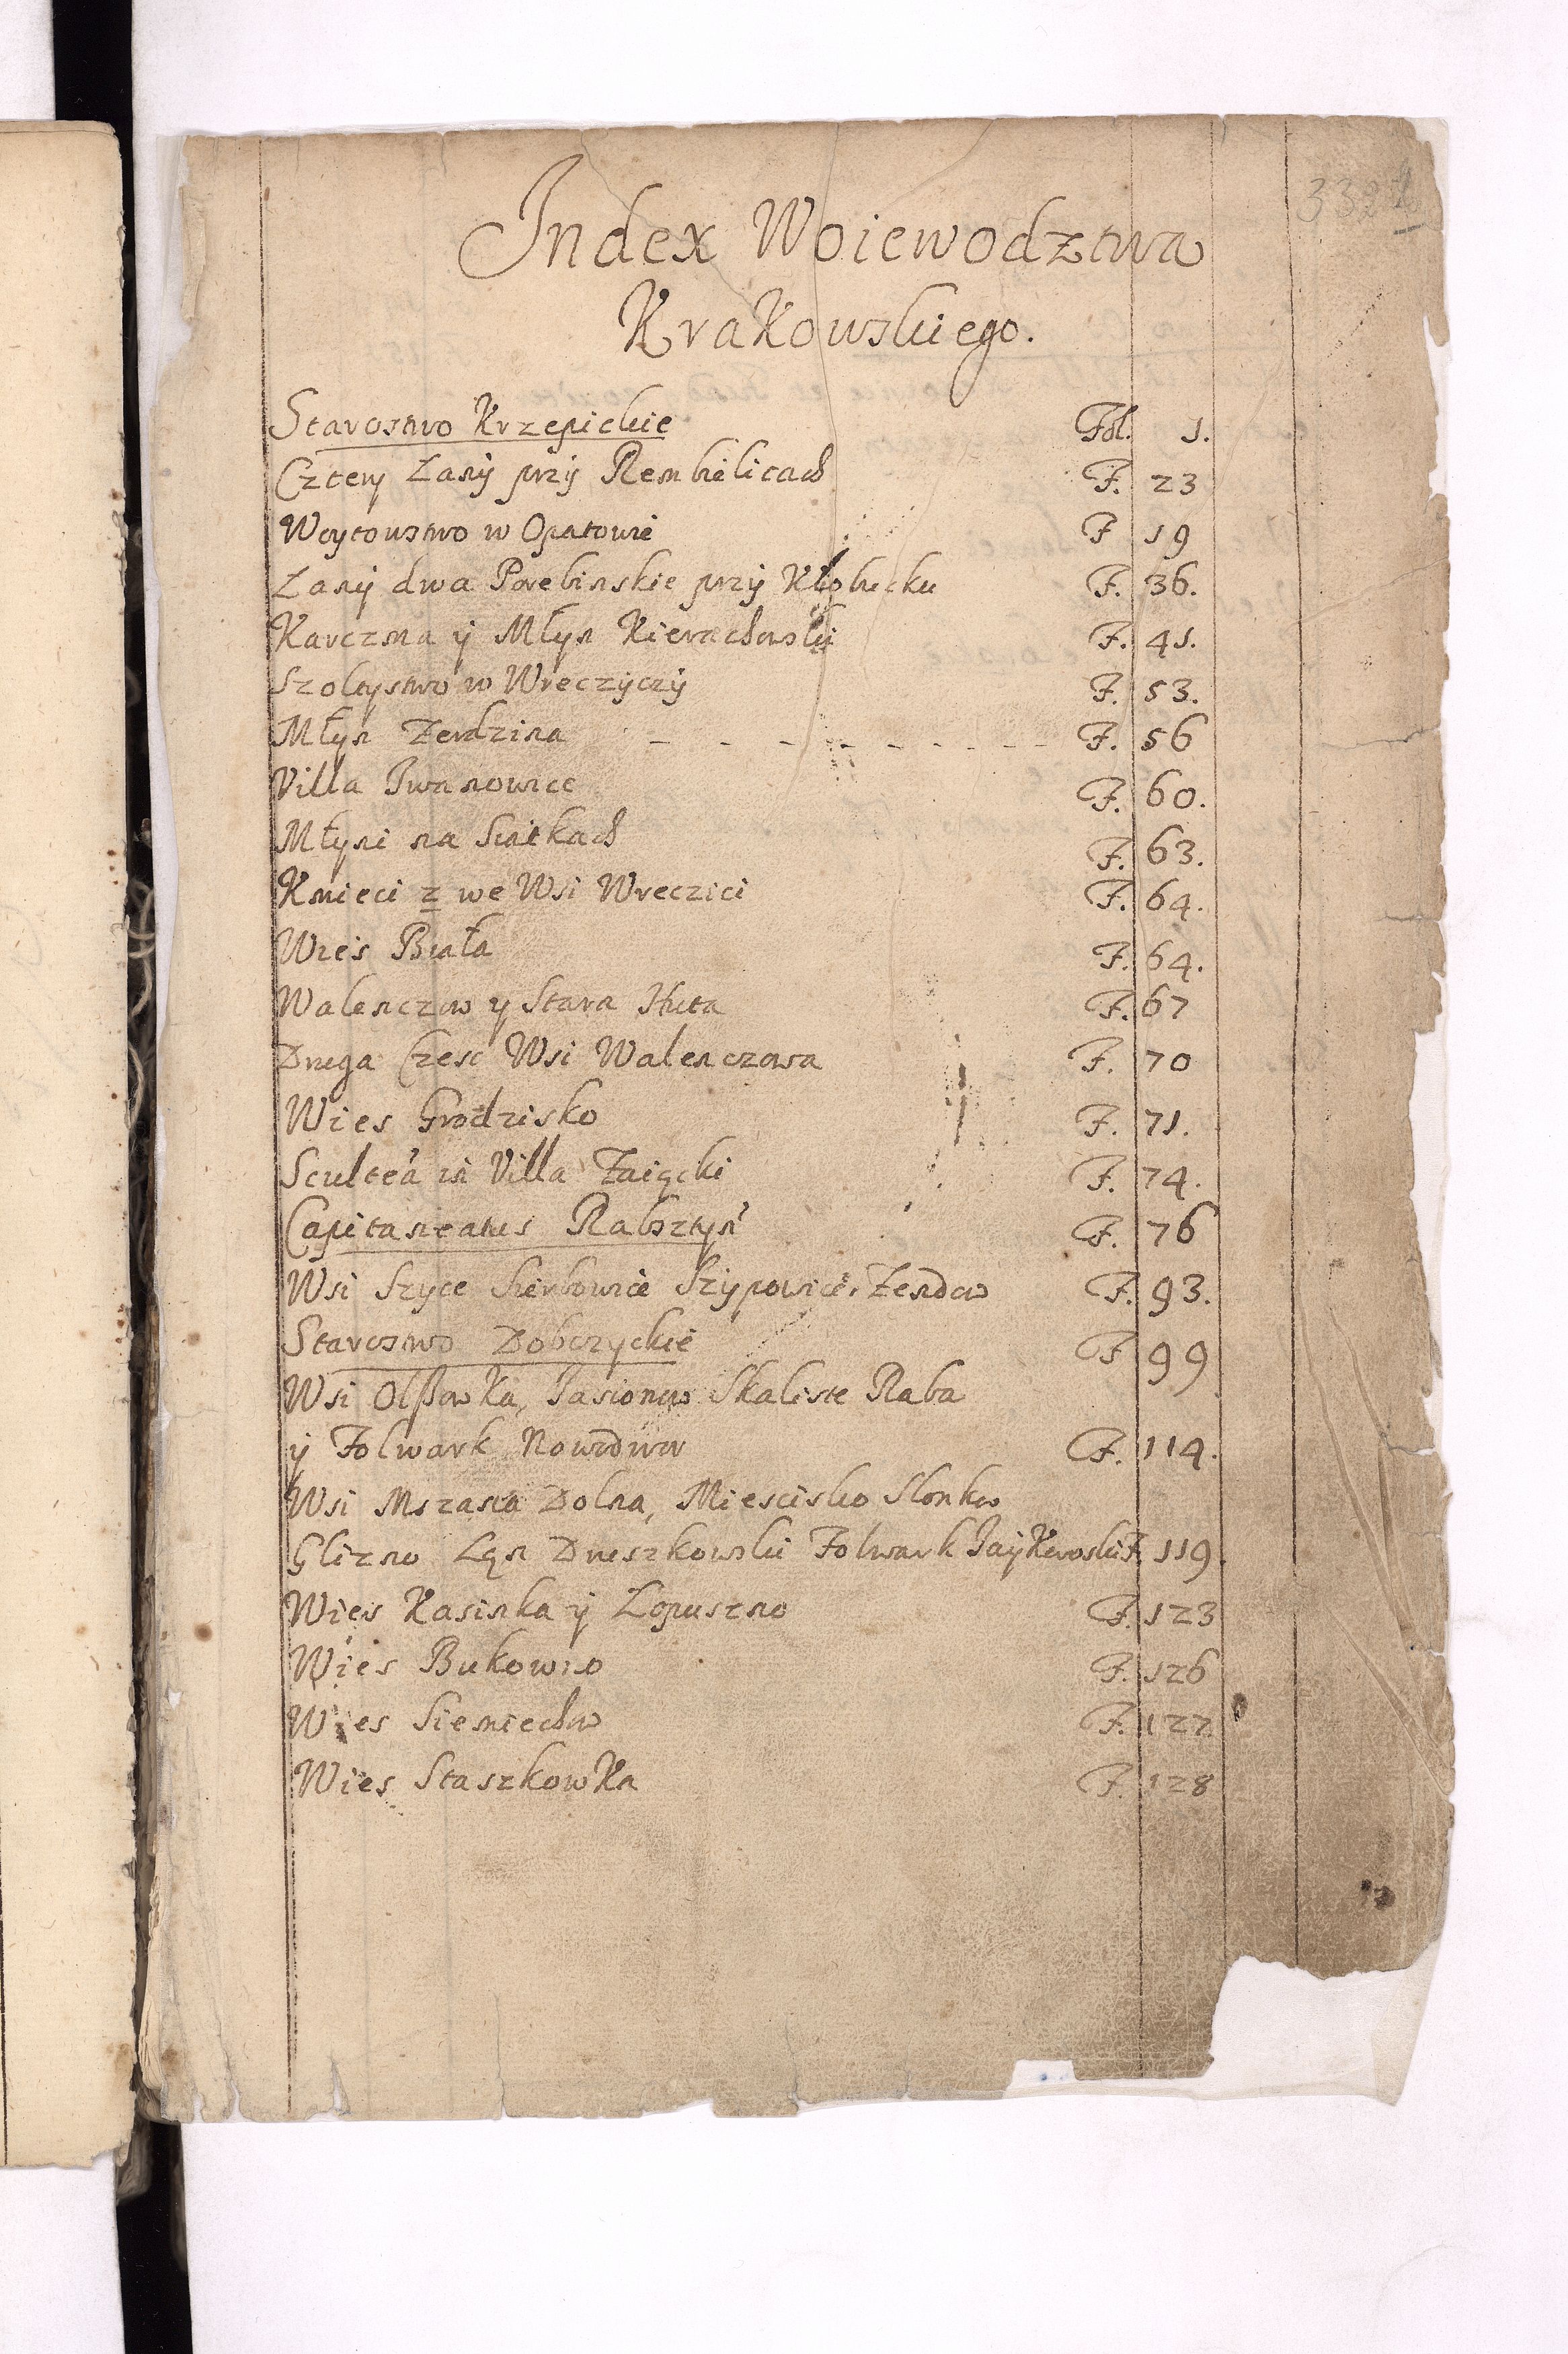 Index Woiewodztwa
Krakowskiego.
Starostwo Krzepickie Fol. 1.
Cztery Lany przy Rembielicach F. 23
Woytowstwo w Opatowie F 19
Lany dwa Porebinskie przy Kłobucku F. 36.
Karczma y Młyn Kierachowski F. 41.
Szoltystwo w Wreczyczy F. 53.
Młyn Zerdzina F. 56
Villa Iwanowice F. 60.
Młyni na F. 63.
Kmieci 2 we Wsi Wreczici F. 64.
Wies Biała F. 64.
Walenczow y Stara Huta F. 67
Druga Czesc Wsi Walenczowa F. 70
Wies Grodzisko F. 71.
Scultea in Villa Zaiącki F. 74.
Capitaneatus Rabsztyn F. 76
Wsi Szyce Sierbowice Szypowice, Zendow F. 93.
Starostwo Dobczyckie F 99
Wsi Olßowka, Jasionow Skaliste Raba
y Folwark Nowadwor F. 114.
Wsi Mszana Dolna, Miescisko Slonko
Glizno Łąn Druszkowski Folwark F. 119.
Wies Kasinka y Lopuszno F. 123
Wies Bukowno F. 126
Wies Siemiechow F. 127
Wies Staszkowka F. 128